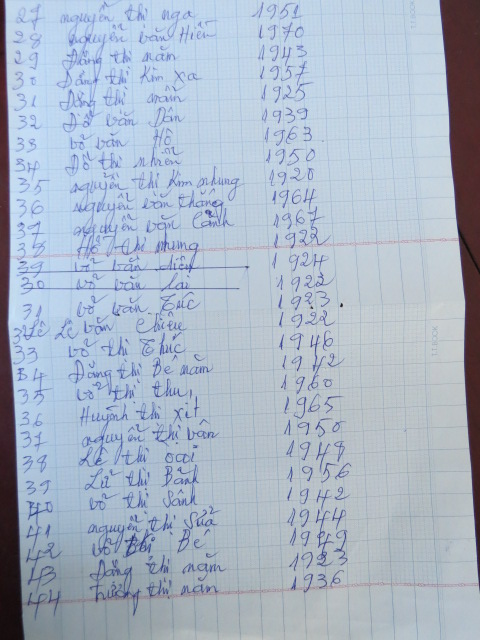 27 nguyễn thị nga 1951
28 nguyễn văn Hiền 1970
29 Đặng thị năm 1943
30 Đặng thị Kim xa 1957
31 Đặng thị mẫn 1925
32 Đỗ văn Dân 1939
33 võ văn Hồ 1963
34 Đỗ thị nhền 1950
35 nguyễn thị Kim nhung 1920
36 nguyễn văn thắng 1964
37 nguyễn văn Cảnh 1967
38 Hồ thị nhưng 1922
39 võ văn 1924
30 võ văn lai 1922
31 võ văn Túc 1923
Lê văn Chiêu 1922
33 võ thị Thúc 1946
34 Đặng thị Bé năm 1942
35 võ thị thu 1960
36 Huỳnh thị xịt 1965
37 nguyễn thị vân 1950
38 Lê thị oai 1948
39 Lữ thị Bảnh 1956
40 võ thị Sánh 1942
41 nguyễn thị Sửa 1944
42 võ thị Bé 1949
43 Đặng thị năm 1923
44 trương thị năm 1936